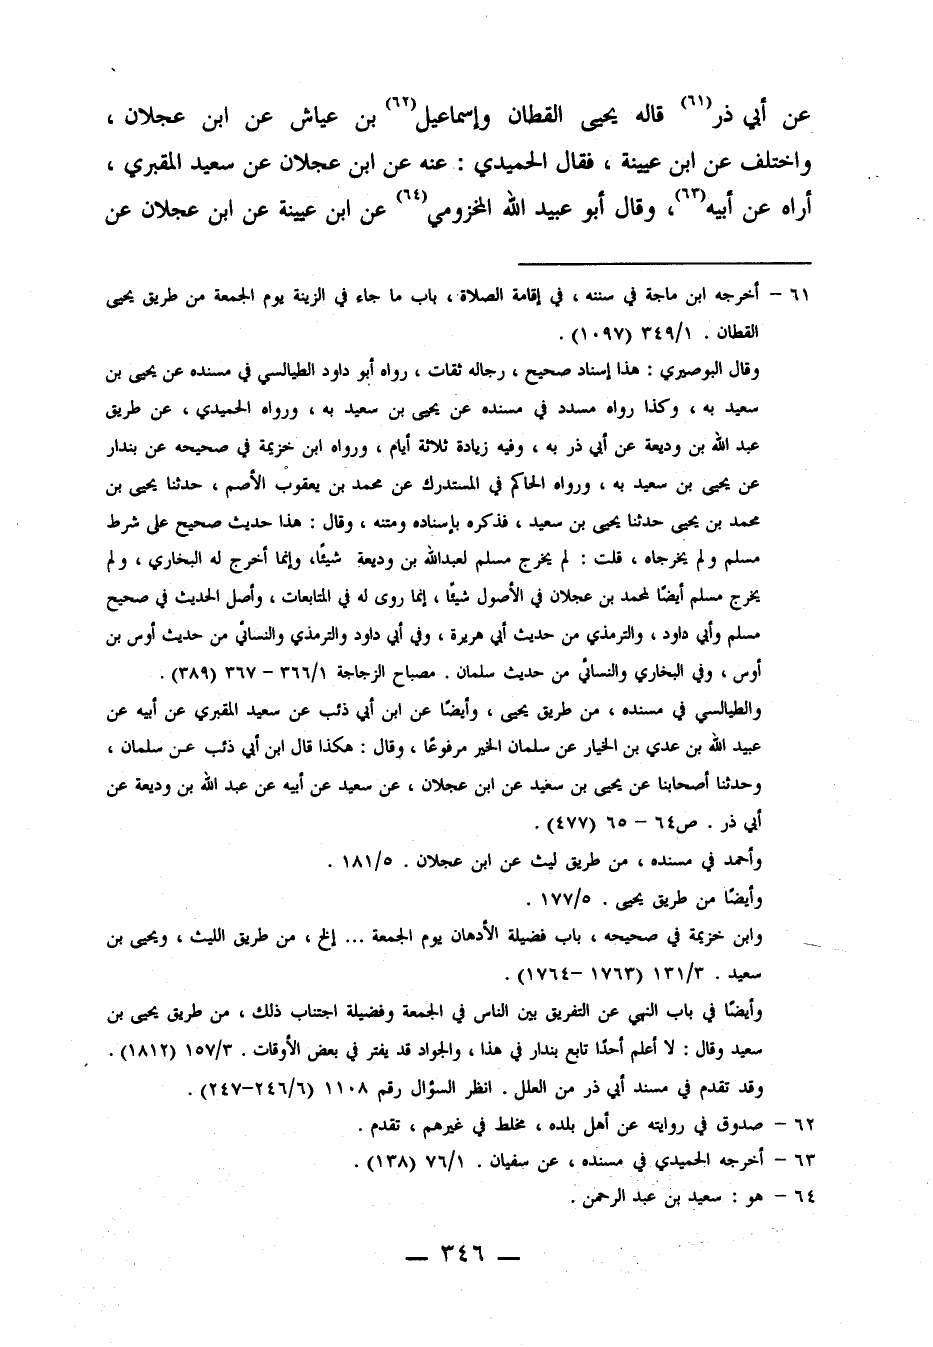 عن أبي ذر(٦١) قاله يحيى القطان وإسماعيل(٦٢) بن عياش عن ابن عجلان ،
واختلف عن ابن عيينة ، فقال الحميدي : عنه عن ابن عجلان عن سعيد المقبري ،
أراه عن أبيه(٦٣)، وقال أبو عبيد الله المخزومي(٦٤) عن ابن عيينة عن ابن عجلان عن
٦١ – أخرجه ابن ماجة في سننه ، في إقامة الصلاة ، باب ما جاء في الزينة يوم الجمعة من طريق يحيى
القطان . ٣٤٩/١ (١٠٩٧) .
وقال البوصيري : هذا إسناد صحيح ، رجاله ثقات ، رواه أبو داود الطيالسي في مسنده عن يحيى بن
سعيد به ، وكذا رواه مسدد في مسنده عن يحيى بن سعيد به ، ورواه الحميدي ، عن طريق
عبد الله بن وديعة عن أبي ذر به ، وفيه زيادة ثلاثة أيام ، ورواه ابن خزيمة في صحيحه عن بندار
عن يحيى بن سعيد به ، ورواه الحاكم في المستدرك عن محمد بن يعقوب الأصم ، حدثنا يحيى بن
محمد بن يحيى حدثنا يحيى بن سعيد ، فذكره بإسناده ومتنه ، وقال : هذا حديث صحيح على شرط
مسلم ولم يخرجاه ، قلت : لم يخرج مسلم لعبدالله بن وديعة شيئًا، وإنما أخرج له البخاري ، ولم
يخرج مسلم أيضًا لمحمد بن عجلان في الأصول شيئًا ، إنما روى له في المتابعات ، وأصل الحديث في صحيح
مسلم وأبي داود ، والترمذي من حديث أبي هريرة ، وفي أبي داود والترمذي والنسائي من حديث أوس بن
أوس ، وفي البخاري والنسائي من حديث سلمان . مصباح الزجاجة ٣٦٦/١ – ٣٦٧ (٣٨٩) .
والطيالسي في مسنده ، من طريق يحيى ، وأيضًا عن ابن أبي ذئب عن سعيد المقبري عن أبيه عن
عبيد الله بن عدي بن الخيار عن سلمان الخير مرفوعًا ، وقال : هكذا قال ابن أبي ذئب عن سلمان ،
وحدثنا أصحابنا عن يحيى بن سعيد عن ابن عجلان ، عن سعيد عن أبيه عن عبد الله بن وديعة عن
أبي ذر . ص٦٤ – ٦٥ (٤٧٧) .
وأحمد في مسنده ، من طريق ليث عن ابن عجلان . ١٨١/٥ .
وأيضًا من طريق يحيى . ١٧٧/٥ .
وابن خزيمة في صحيحه ، باب فضيلة الأدهان يوم الجمعة ... إلخ ، من طريق الليث ، ويحيى بن
سعيد . ١٣١/٣ (١٧٦٣ –١٧٦٤) .
وأيضًا في باب النهي عن التفريق بين الناس في الجمعة وفضيلة اجتناب ذلك ، من طريق يحيى بن
سعيد وقال : لا أعلم أحدًا تابع بندار في هذا ، والجواد قد يفتر في بعض الأوقات . ١٥٧/٣ (١٨١٢) .
وقد تقدم في مسند أبي ذر من العلل . انظر السؤال رقم ١١٠٨ (٢٤٦/٦–٢٤٧) .
٦٢ – صدوق في روايته عن أهل بلده ، مخلط في غيرهم ، تقدم .
٦٣ – أخرجه الحميدي في مسنده ، عن سفيان . ٧٦/١ (١٣٨) .
٦٤ – هو : سعيد بن عبد الرحمن .
— ٣٤٦ —